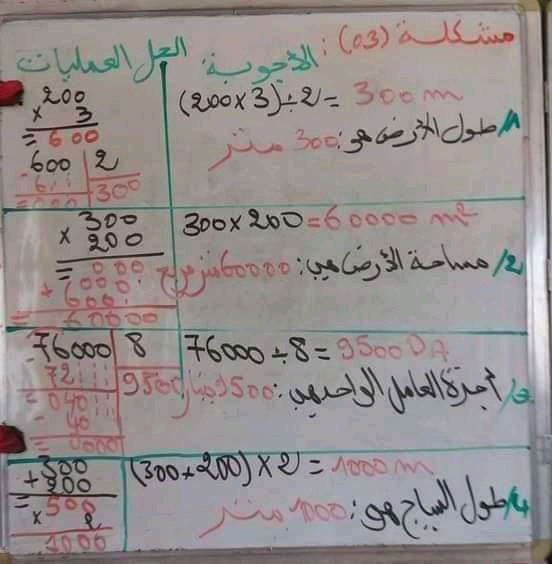 مشكلة (03):
الحل
الأجوبة: العمليات
(200 x 3) ÷ 2 = 300 m
1/ طول الأرض هو: 300 متر
200
x 3
= 600
600 2
300
300 x 200 = 60000 m²
2/ مساحة الأرض هي: 60000 متر مربع
300
x 200
= 000
+ 000
= 60000
76000 ÷ 8 = 9500 DA
3/ أجرة العامل الواحد هي: 9500 دينار
76000 8
- 72 9500
= 040
- 40
= 0000
(300 + 200) x 2 = 1000 m
4/ طول السياج هو: 1000 متر
300
+ 200
= 500
x 2
1000